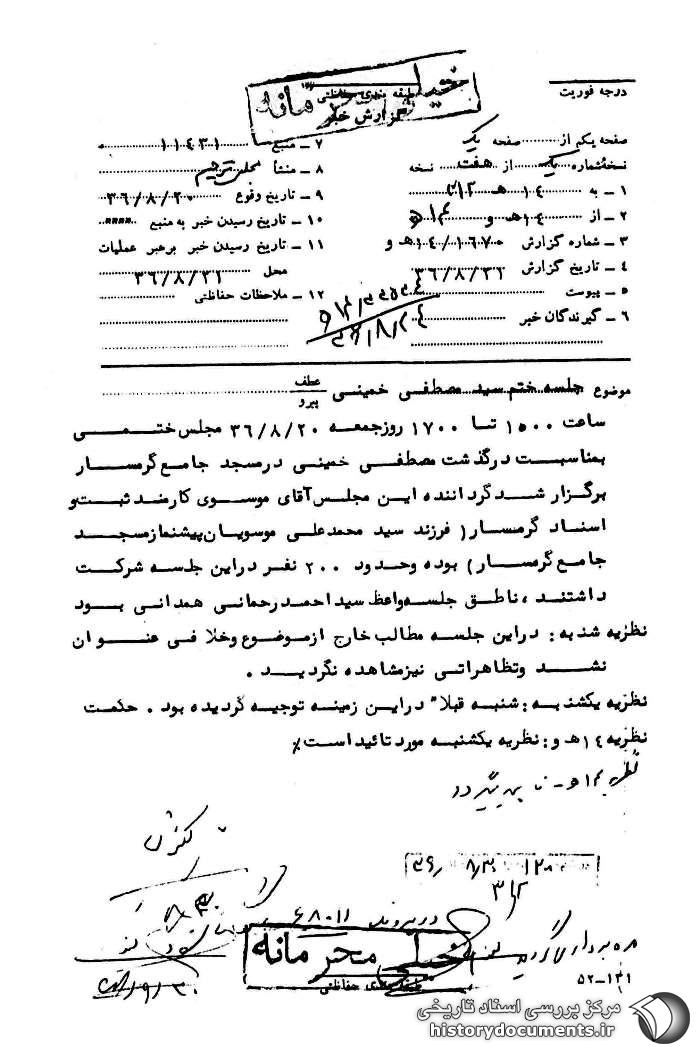 درجه فوریت
خیلی محرمانه
طبقه بندی حفاظتی
گزارش خبر
صفحه یکم از صفحه یک
نسخه شماره یک از هفت نسخه
۱ - به ۱۴ هـ ۳۱۲
۲ - از ۱۴هـ و
۳ - شماره گزارش ۱۴/۱۶۷۰هـ و
۴ - تاریخ گزارش ۳۶/۸/۲۲
۵ - پیوست
۶ - گیرندگان خبر
۷ - منبع ۱۱۴۳۱
۸ - منشأ مجلس ترحیم
۹ - تاریخ وقوع ۳۶/۸/۲۰
۱۰ - تاریخ رسیدن خبر به منبع
۱۱ - تاریخ رسیدن خبر برهبر عملیات
محل ۳۶/۸/۲۱
۱۲ - ملاحظات حفاظتی
موضوع جلسه ختم سید مصطفی خمینی عطف پیرو
ساعت ۱۵۰۰ تا ۱۷۰۰ روزجمعه ۳۶/۸/۲۰ مجلس ختمی
بمناسبت درگذشت مصطفی خمینی درمسجد جامع گرمسار
برگزار شد گرداننده این مجلس آقای موسوی کارمند ثبت و
اسناد گرمسار( فرزند سید محمدعلی موسویان پیشنمازمسجد
جامع گرمسار) بوده وحدود ۲۰۰ نفر دراین جلسه شرکت
داشتند ، ناطق جلسه واعظ سید احمد رحمانی همدانی بود
نظریه شنبه : دراین جلسه مطالب خارج ازموضوع وخلافی عنوان
نشد وتظاهراتی نیزمشاهده نگردید .
نظریه یکشنبه : شنبه قبلا" دراین زمینه توجیه گردیده بود . حکمت
نظریه ۱۴هـ و : نظریه یکشنبه مورد تائید است٪
۳۱۲
در پرونده ۶۸۰۱۱
بهره برداری گردید
خیلی محرمانه
طبقه بندی حفاظتی
۵۲-۱۳۱
مرکز بررسی اسناد تاریخی
historydocuments.ir